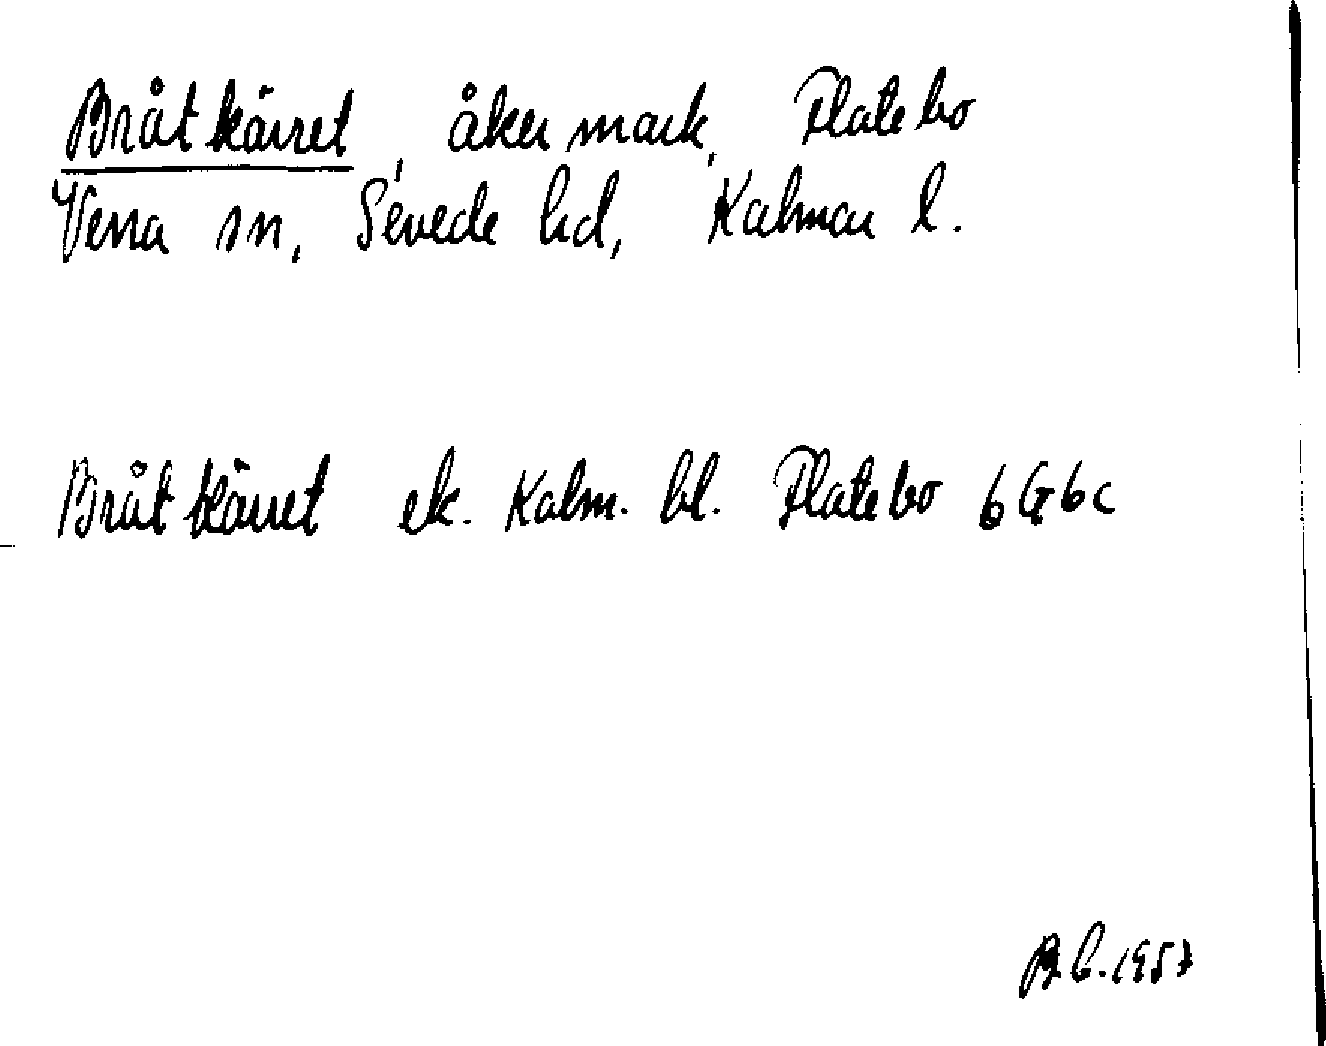 Bråtkärret, åkermark, Flatebo
Vena sn, Sevede hd, Kalmar l.
Bråtkärret ek. Kalm. bl. Flatebo 6G6c
B.C. 1957